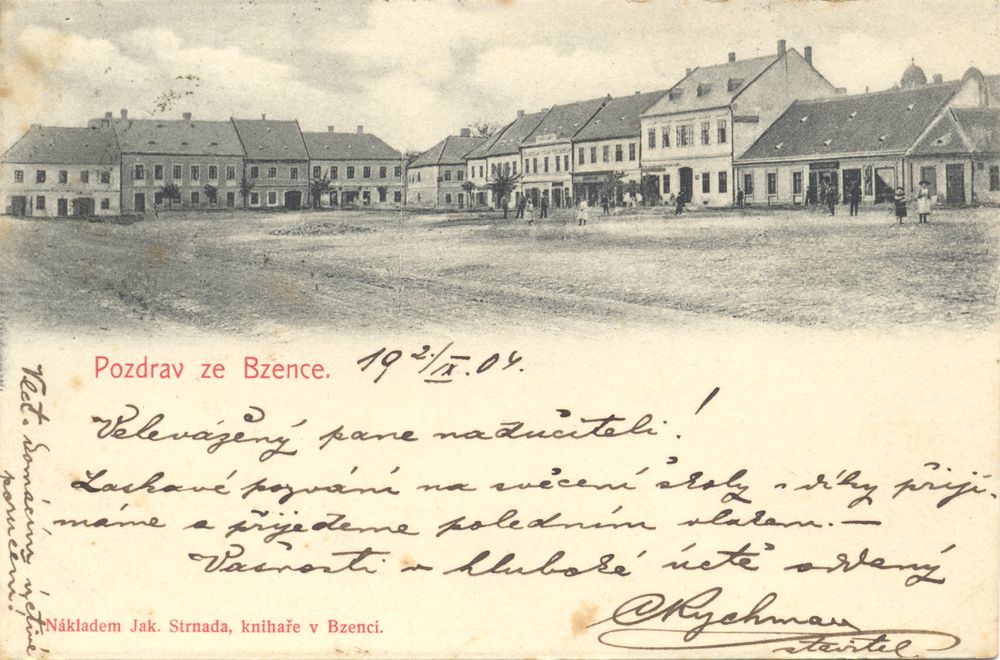 Pozdrav ze Bzence.
19 2/IX. 04.
Velevážený pane nadučiteli!
Laskavé pozvání na svěcení školy s díky přijí-
máme a přijedeme poledním vlakem. —
Vašnosti v hluboké úctě oddaný
Rychman
stavitel
Vlct. domácím uctivé
poručení!
Nákladem Jak. Strnada, knihaře v Bzenci.